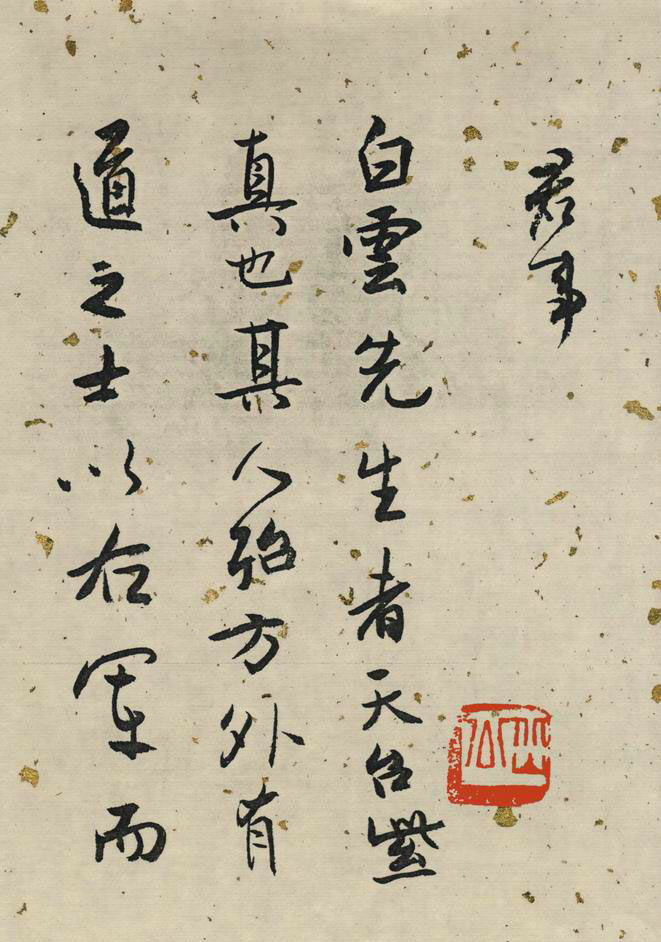 君事
白雲先生者天台紫
真也其人殆方外有
道之士以右軍而